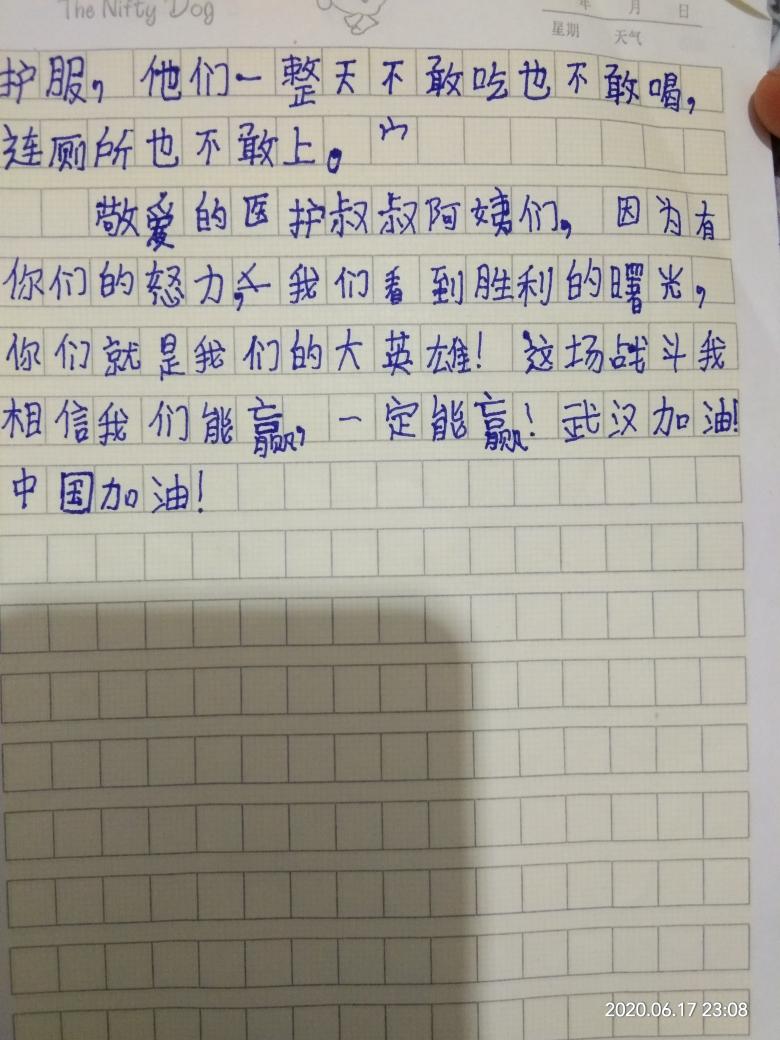 The Nifty Dog
年 月 日
星期 天气
护服，他们一整天不敢吃也不敢喝，
连厕所也不敢上。
敬爱的医护叔叔阿姨们，因为有
你们的怒力，我们看到胜利的曙光，
你们就是我们的大英雄！这场战斗我
相信我们能赢，一定能赢！武汉加油！
中国加油！
2020.06.17 23:08